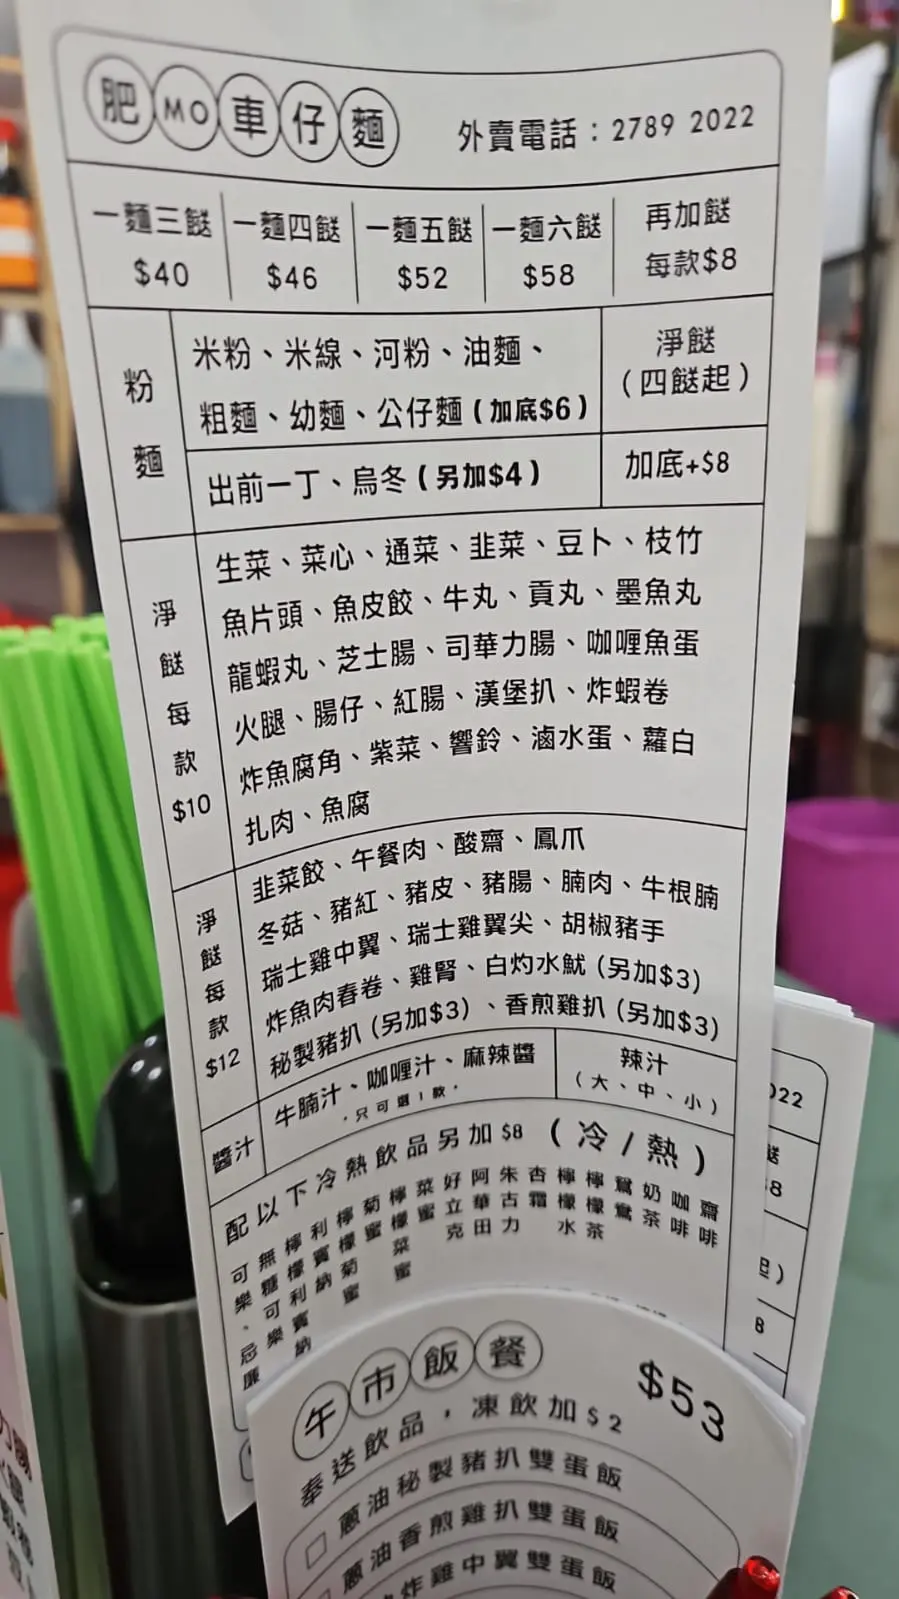 肥MO車仔麵
外賣電話：2789 2022
一麵三餸 一麵四餸 一麵五餸 一麵六餸 再加餸
$40 $46 $52 $58 每款$8
粉麵
米粉、米線、河粉、油麵、
粗麵、幼麵、公仔麵(加底$6)
淨餸
(四餸起)
出前一丁、烏冬(另加$4)
加底+$8
淨餸每款$10
生菜、菜心、通菜、韭菜、豆卜、枝竹
魚片頭、魚皮餃、牛丸、貢丸、墨魚丸
龍蝦丸、芝士腸、司華力腸、咖喱魚蛋
火腿、腸仔、紅腸、漢堡扒、炸蝦卷
炸魚腐角、紫菜、響鈴、滷水蛋、蘿白
扎肉、魚腐
淨餸每款$12
韭菜餃、午餐肉、酸齋、鳳爪
冬菇、豬紅、豬皮、豬腸、腩肉、牛根腩
瑞士雞中翼、瑞士雞翼尖、胡椒豬手
炸魚肉春卷、雞腎、白灼水魷(另加$3)
秘製豬扒(另加$3)、香煎雞扒(另加$3)
醬汁
牛腩汁、咖喱汁、麻辣醬
·只可選1款·
辣汁
(大、中、小)
配以下冷熱飲品另加$8 (冷/熱)
齋啡
咖啡
奶茶
鴛鴦
檸檬茶
檸檬水
杏霜
朱古力
阿華田
好立克
菜蜜
檸檬菜蜜
菊蜜
檸檬菊蜜
利賓納
檸檬利賓納
檸可樂
無糖可樂
可樂、忌廉
午市飯餐
$53
奉送飲品，凍飲加$2
蔥油秘製豬扒雙蛋飯
蔥油香煎雞扒雙蛋飯
炸雞中翼雙蛋飯
2022
餸
8
8